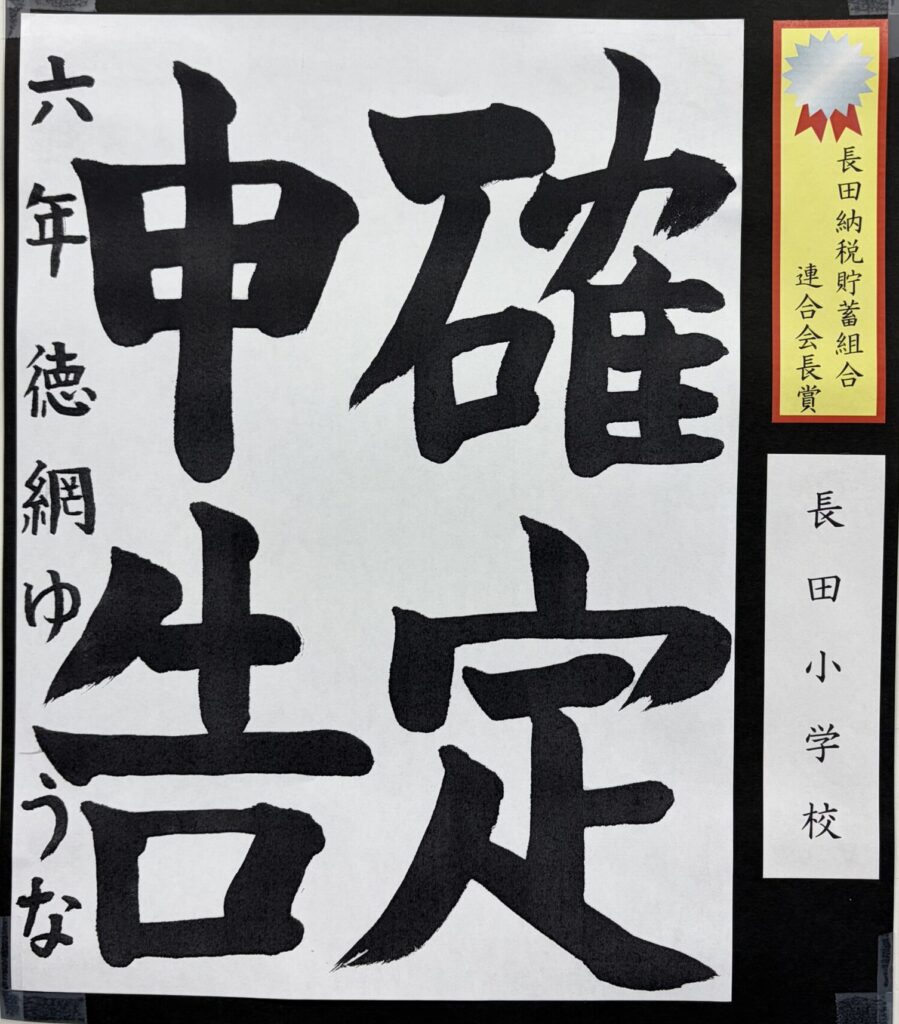 長田納税貯蓄組合
連合会長賞
長田小学校
確定
申告
六年 徳網ゆうな